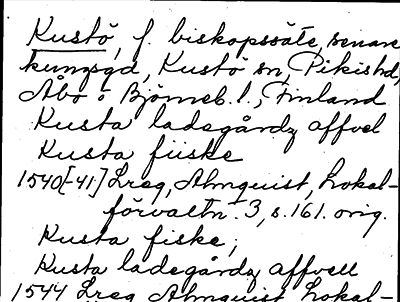 Kustö, f. biskopssäte, senare
kungsgd, Kustö sn, Pikis hd,
Åbo o Björneb. l., Finland
Kusta ladegårdz affvel
Kusta fiiske
1540[-41] Lreg, Almquist, Lokal-
förvaltn. 3, s. 161. orig.
Kusta fiske,
Kusta ladegårdz affvell
1544 Lreg Almquist Lokal-